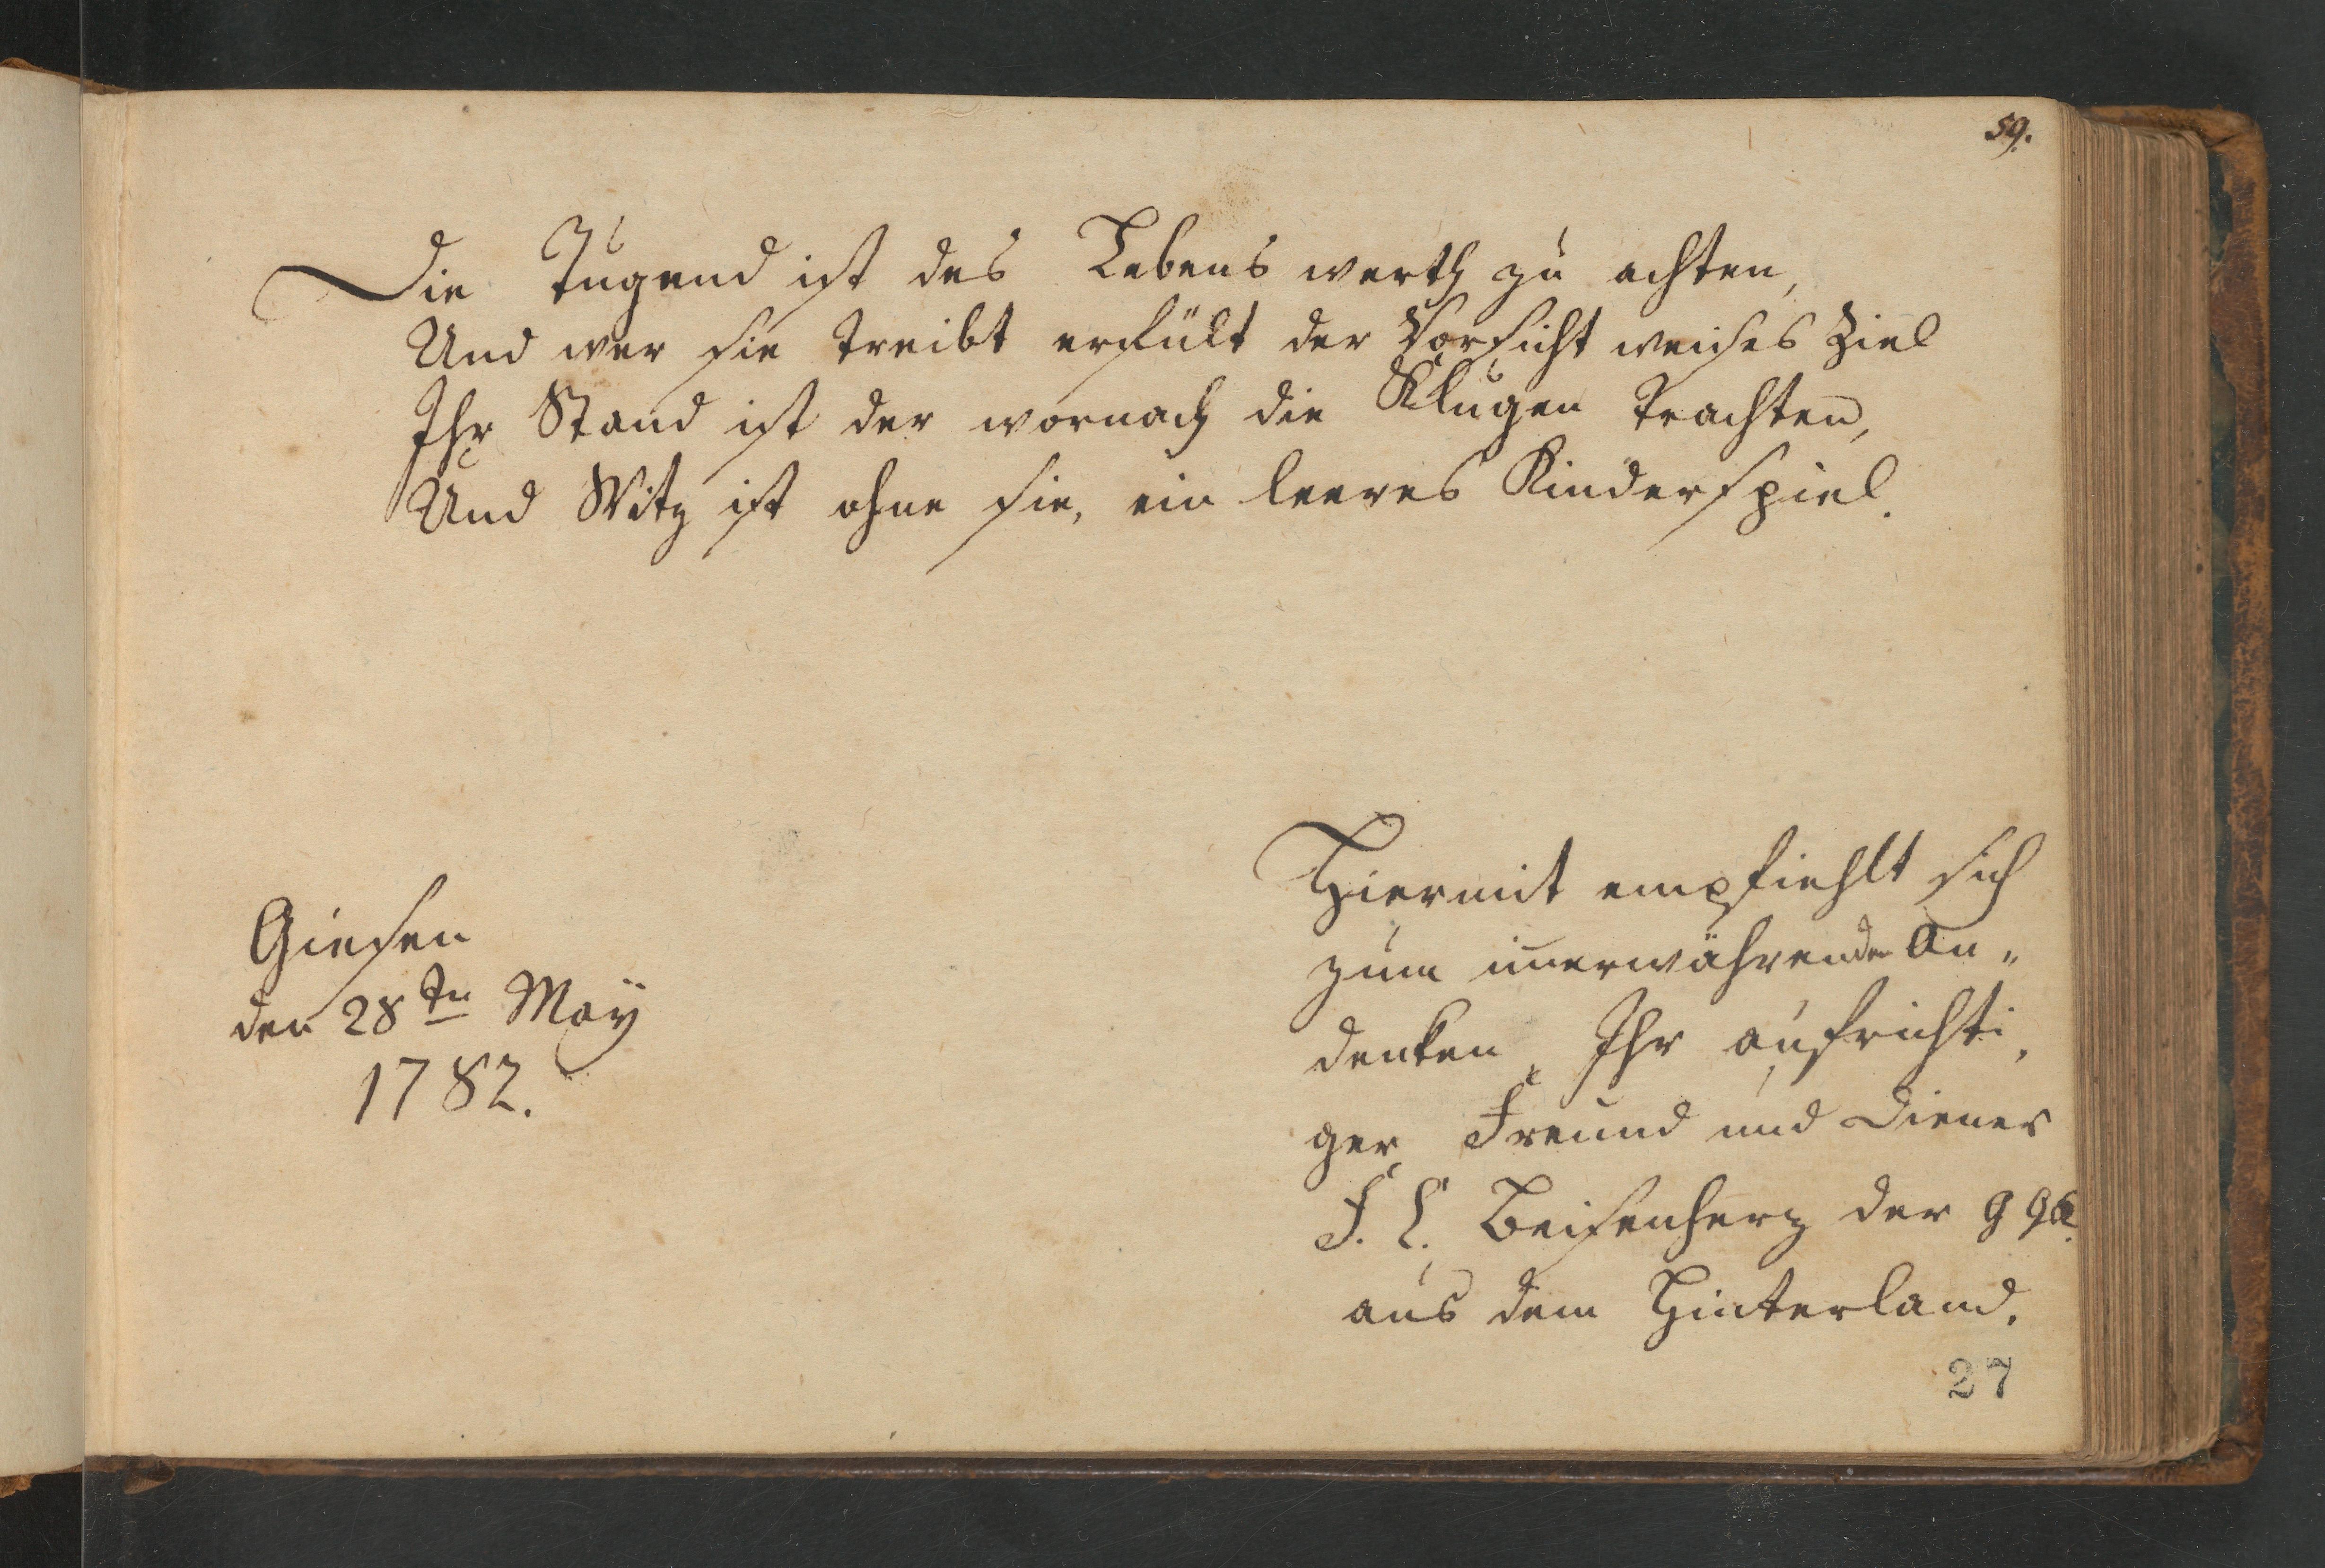 59.
Die Tugend ist des Lebens werth zu achten,
Und wer sie treibt erfült der Vorsicht weises Ziel
Ihr Stand ist der wornach die Klugen trachten,
Und Witz ist ohne sie, ein leeres Kinderspiel.
Giesen
den 28ten Maÿ
1782.
Hiermit empfiehlt sich
zum im̄erwährenden An„
denken Ihr aufrichti„
ger Freund und Diener
F. L. Beisenherz der G G
aus dem Hinterland.
27